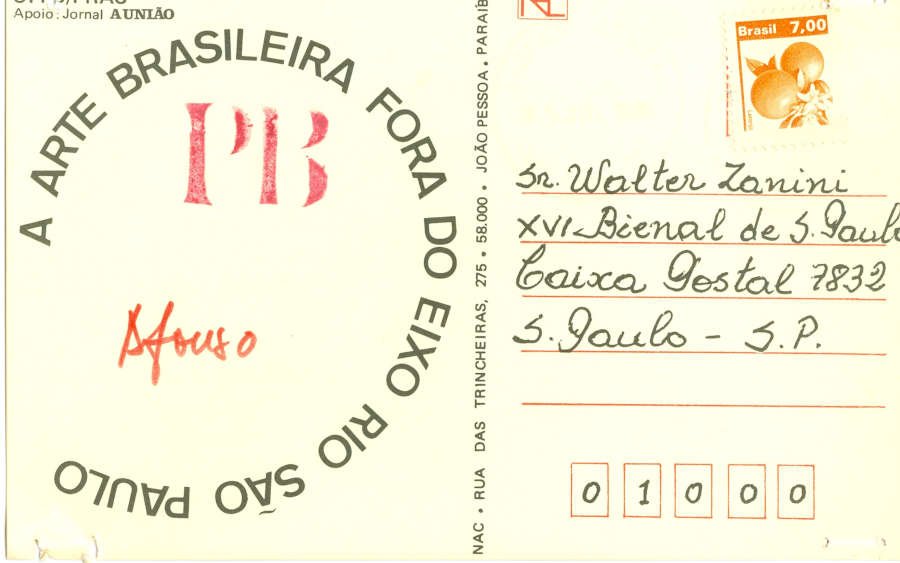 Apoio: Jornal A UNIÃO
A ARTE BRASILEIRA FORA DO EIXO RIO SÃO PAULO
PB
Afonso
NAC • RUA DAS TRINCHEIRAS, 275 • 58.000 • JOÃO PESSOA • PARAIB
Brasil 7,00
Sr. Walter Zanini
XVI-Bienal de S. Paulo
Caixa Postal 7832
S. Paulo - S.P.
0 1 0 0 0